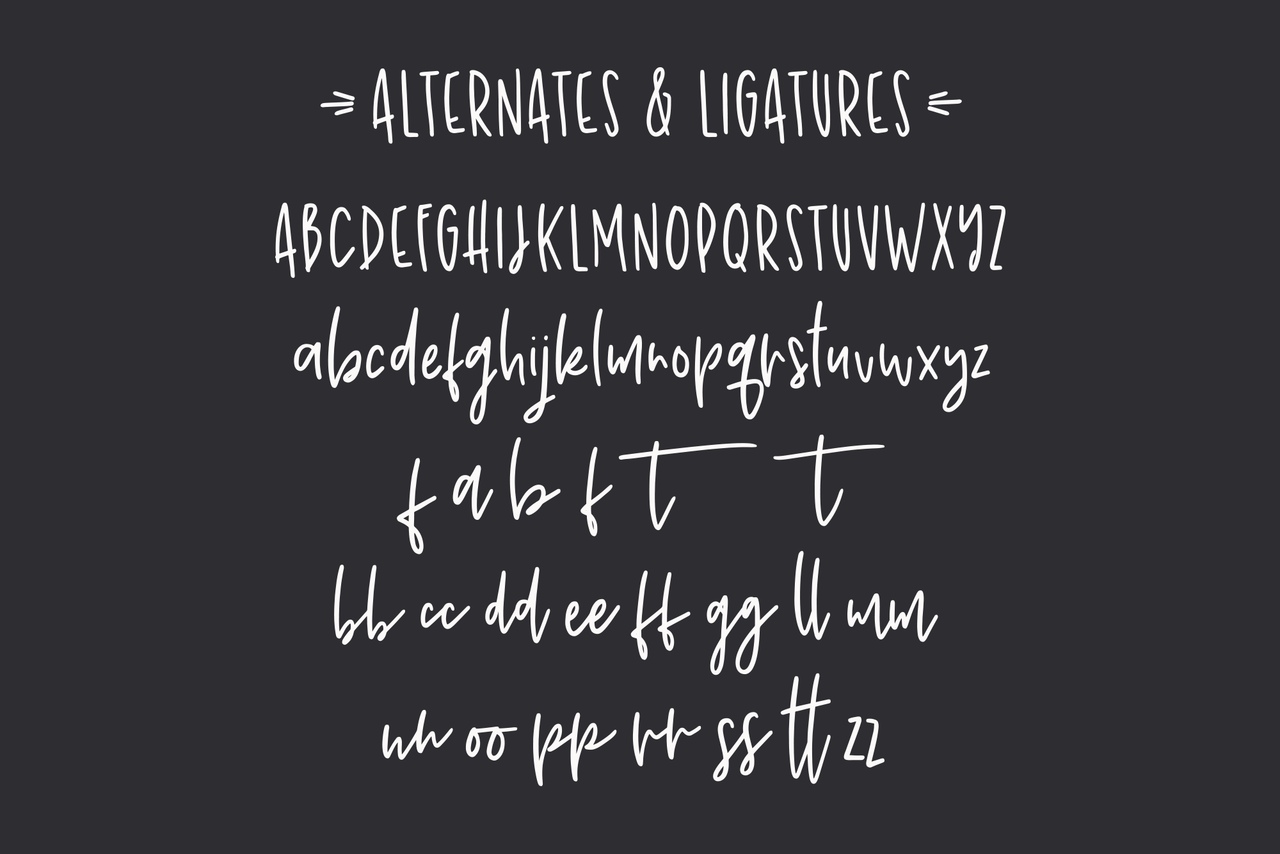 ALTERNATES & LIGATURES
ABCDEFGHIJKLMNOPQRSTUVWXYZ
abcdefghijklmnopqrstuvwxyz
f a b f t t
bb cc dd ee ff gg ll mm
nn oo pp rr ss tt zz